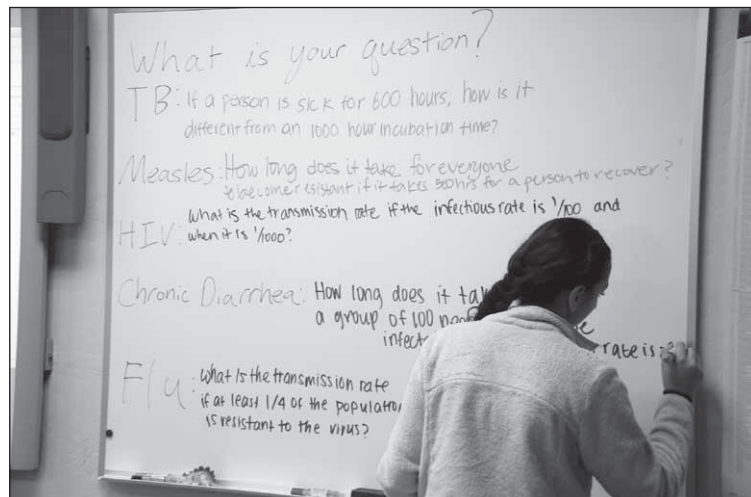 What is your question?
TB: If a person is sick for 600 hours, how is it
different from an 1000 hour incubation time?
Measles: How long does it take for everyone
to become resistant if it takes 500hrs for a person to recover?
What is the transmission rate if the infectious rate is 1/100 and
HIV: when it is 1/1000?
Chronic Diarrhea: How long does it
a group of 100
rate is
Flu: What is the transmission rate
if at least 1/4 of the population
is resistant to the virus?